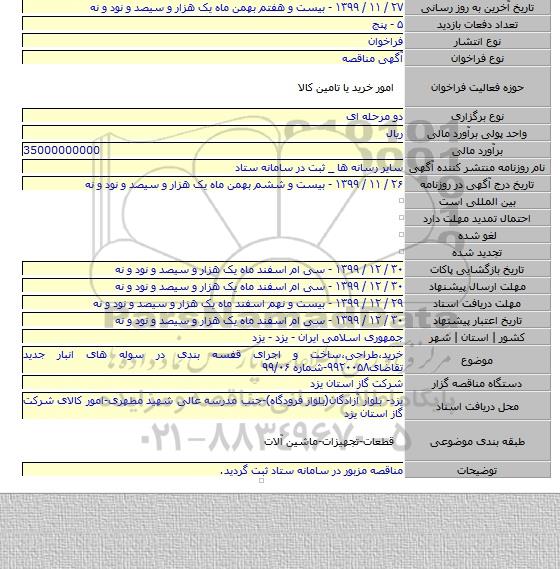 تاریخ آخرین به روز رسانی ۲۷ / ۱۱ / ۱۳۹۹ - بیست و هفتم بهمن ماه یک هزار و سیصد و نود و نه
تعداد دفعات بازدید ۵ - پنج
نوع انتشار فراخوان
نوع فراخوان آگهی مناقصه
حوزه فعالیت فراخوان امور خرید با تامین کالا
نوع برگزاری دو مرحله ای
واحد پولی برآورد مالی ریال
برآورد مالی 35000000000
نام روزنامه منتشر کننده آگهی سایر رسانه ها _ ثبت در سامانه ستاد
تاریخ درج آگهی در روزنامه ۲۶ / ۱۱ / ۱۳۹۹ - بیست و ششم بهمن ماه یک هزار و سیصد و نود و نه
بین المللی است
احتمال تمدید مهلت دارد
لغو شده
تجدید شده
تاریخ بازگشایی پاکات ۳۰ / ۱۲ / ۱۳۹۹ - سی ام اسفند ماه یک هزار و سیصد و نود و نه
مهلت ارسال پیشنهاد ۳۰ / ۱۲ / ۱۳۹۹ - سی ام اسفند ماه یک هزار و سیصد و نود و نه
مهلت دریافت اسناد ۲۹ / ۱۲ / ۱۳۹۹ - بیست و نهم اسفند ماه یک هزار و سیصد و نود و نه
تاریخ اعتبار پیشنهاد ۳۰ / ۱۲ / ۱۳۹۹ - سی ام اسفند ماه یک هزار و سیصد و نود و نه
کشور | استان | شهر جمهوری اسلامی ایران - یزد - یزد
موضوع خرید،طراحی،ساخت و اجرای قفسه بندی در سوله های انبار جدید
تقاضای۹۹۲۰۰۵۸-شماره ۹۹/۰۶
دستگاه مناقصه گزار شرکت گاز استان یزد
محل دریافت اسناد یزد- بلوار آزادگان(بلوار فرودگاه)-جنب مدرسه عالی شهید مطهری-امور کالای شرکت
گاز استان یزد
طبقه بندی موضوعی قطعات-تجهیزات-ماشین آلات
توضیحات مناقصه مزبور در سامانه ستاد ثبت گردید.
ParsNamadData
۰۲۱-۸۸۳۴۹۶۷۰-۵